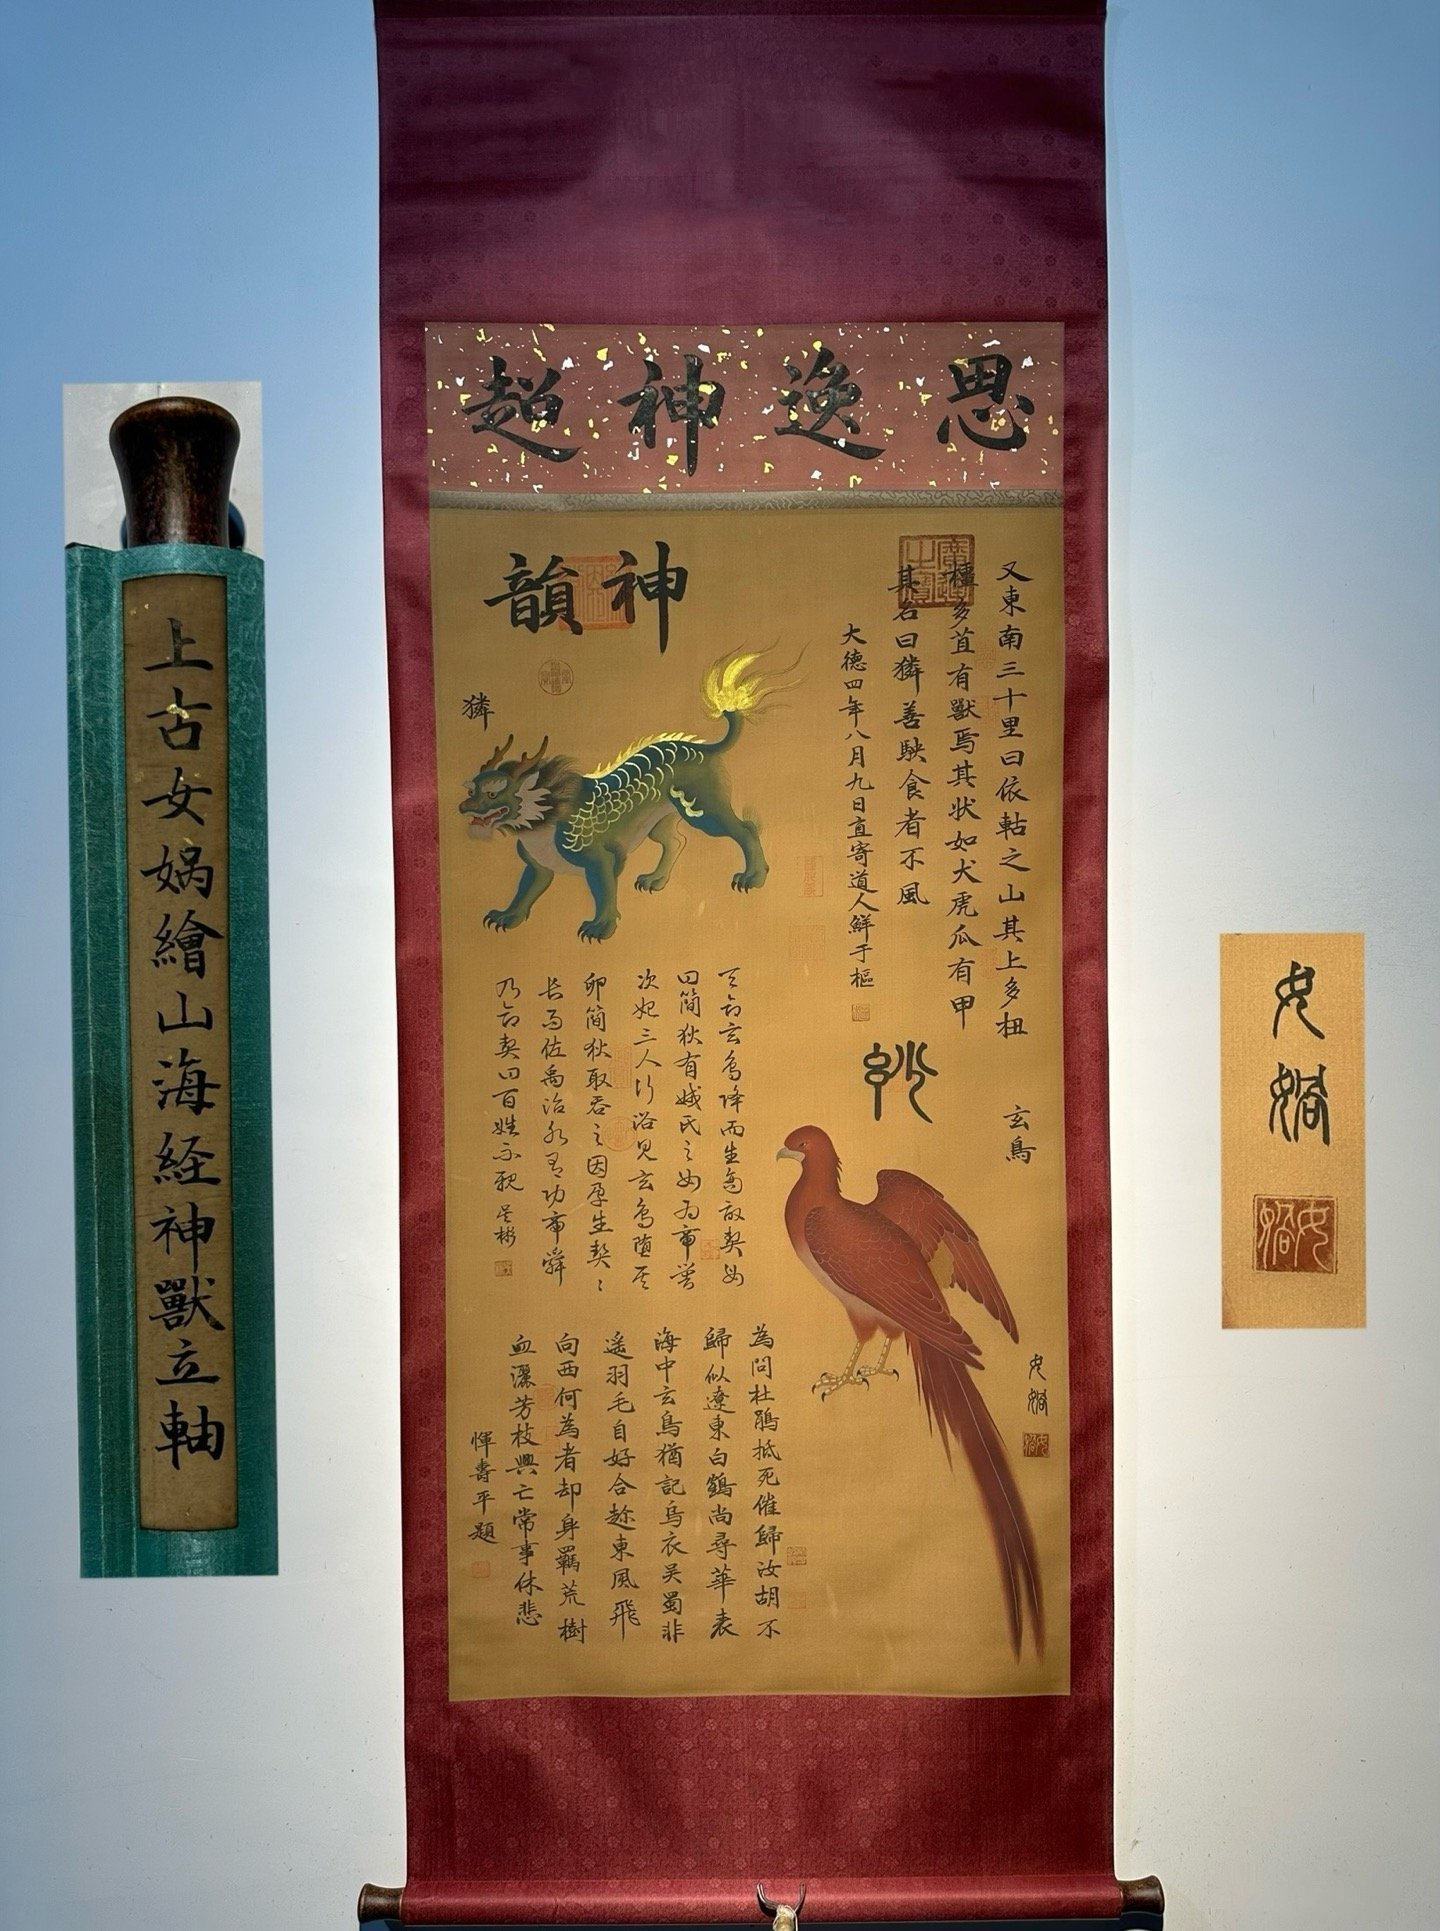 思逸神超
神韻
又東南三十里曰依軲之山其上多杻
橿多苴有獸焉其狀如犬虎爪有甲
其名曰獜善駚食者不風
大德四年八月九日直寄道人鮮于樞
獜
天命玄鳥降而生商故契母
曰簡狄有娀氏之女為帝嚳
次妃三人行浴見玄鳥墮其
卵簡狄取吞之因孕生契契
長而佐禹治水有功帝舜
乃命契曰百姓不親 吳彬
妙
玄鳥
為問杜鵑抵死催歸汝胡不
歸似遼東白鶴尚尋華表
海中玄鳥猶記烏衣吳蜀非
遙羽毛自好合趂東風飛
向西何為者却身羈荒樹
血灑芳枝興亡常事休悲
惲壽平題
女媧
上古女媧繪山海経神獸立軸
女媧
女媧